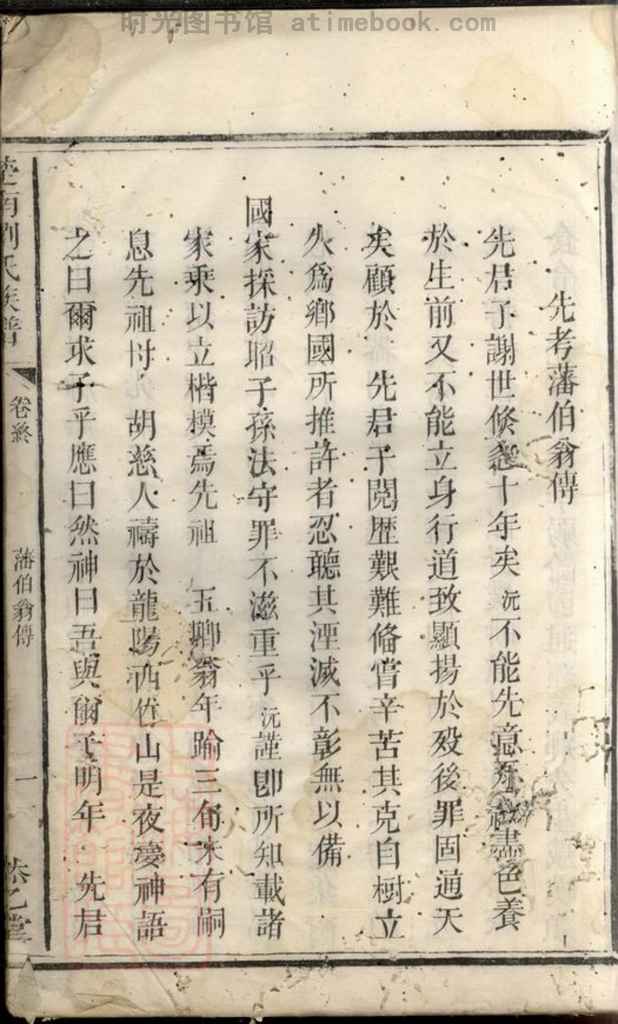 时光图书馆 atimebook.com
先考藩伯翁傳
先君子謝世倏逾十年矣沅不能先意承禩盡色養
於生前又不能立身行道致顯揚於殁後罪固通天
矣顧於 先君子閱歷艱難備嘗辛苦其克自樹立
久爲鄉國所推許者忍聽其湮滅不彰無以備
國家採訪昭子孫法守罪不滋重乎沅謹卽所知載諸
家乘以立楷模焉先祖 玉卿翁年踰三旬未有嗣
息先祖母 胡慈人禱於龍陽西竺山是夜夢神語
之曰爾求子乎應曰然神曰吾與爾子明年 先君
楚南劉氏族譜
卷終
藩伯翁傳
一